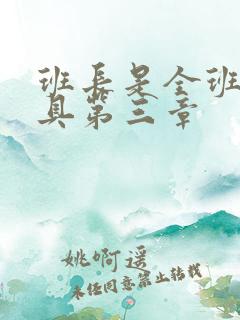 班长是全班
具第三章
姚啊遥
未经同意禁止转载